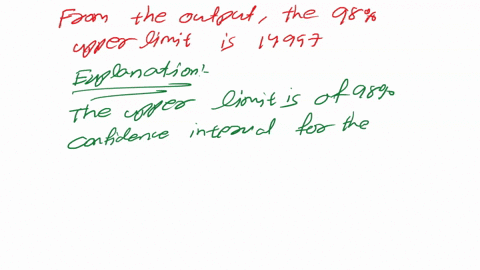 From the output, the 98%
upper limit is 14997
Explanation:-
The upper limit is of 98%
confidence interval for the